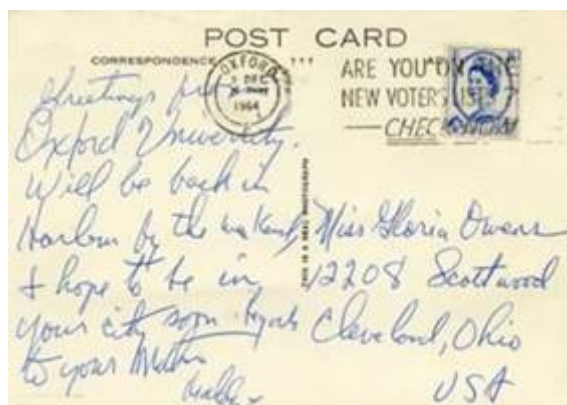 POST CARD
CORRESPONDENCE
OXFORD
DEC
1964
ARE YOU ON THE
NEW VOTERS LIST?
CHECK NOW
Greetings from
Oxford University.
Will be back in
Harlem by the weekend,
& hope to be in
your city soon. Regards
to your Mother
THIS IS A REAL PHOTOGRAPH
Miss Gloria Owens
12208 Scottwood
Cleveland, Ohio
USA